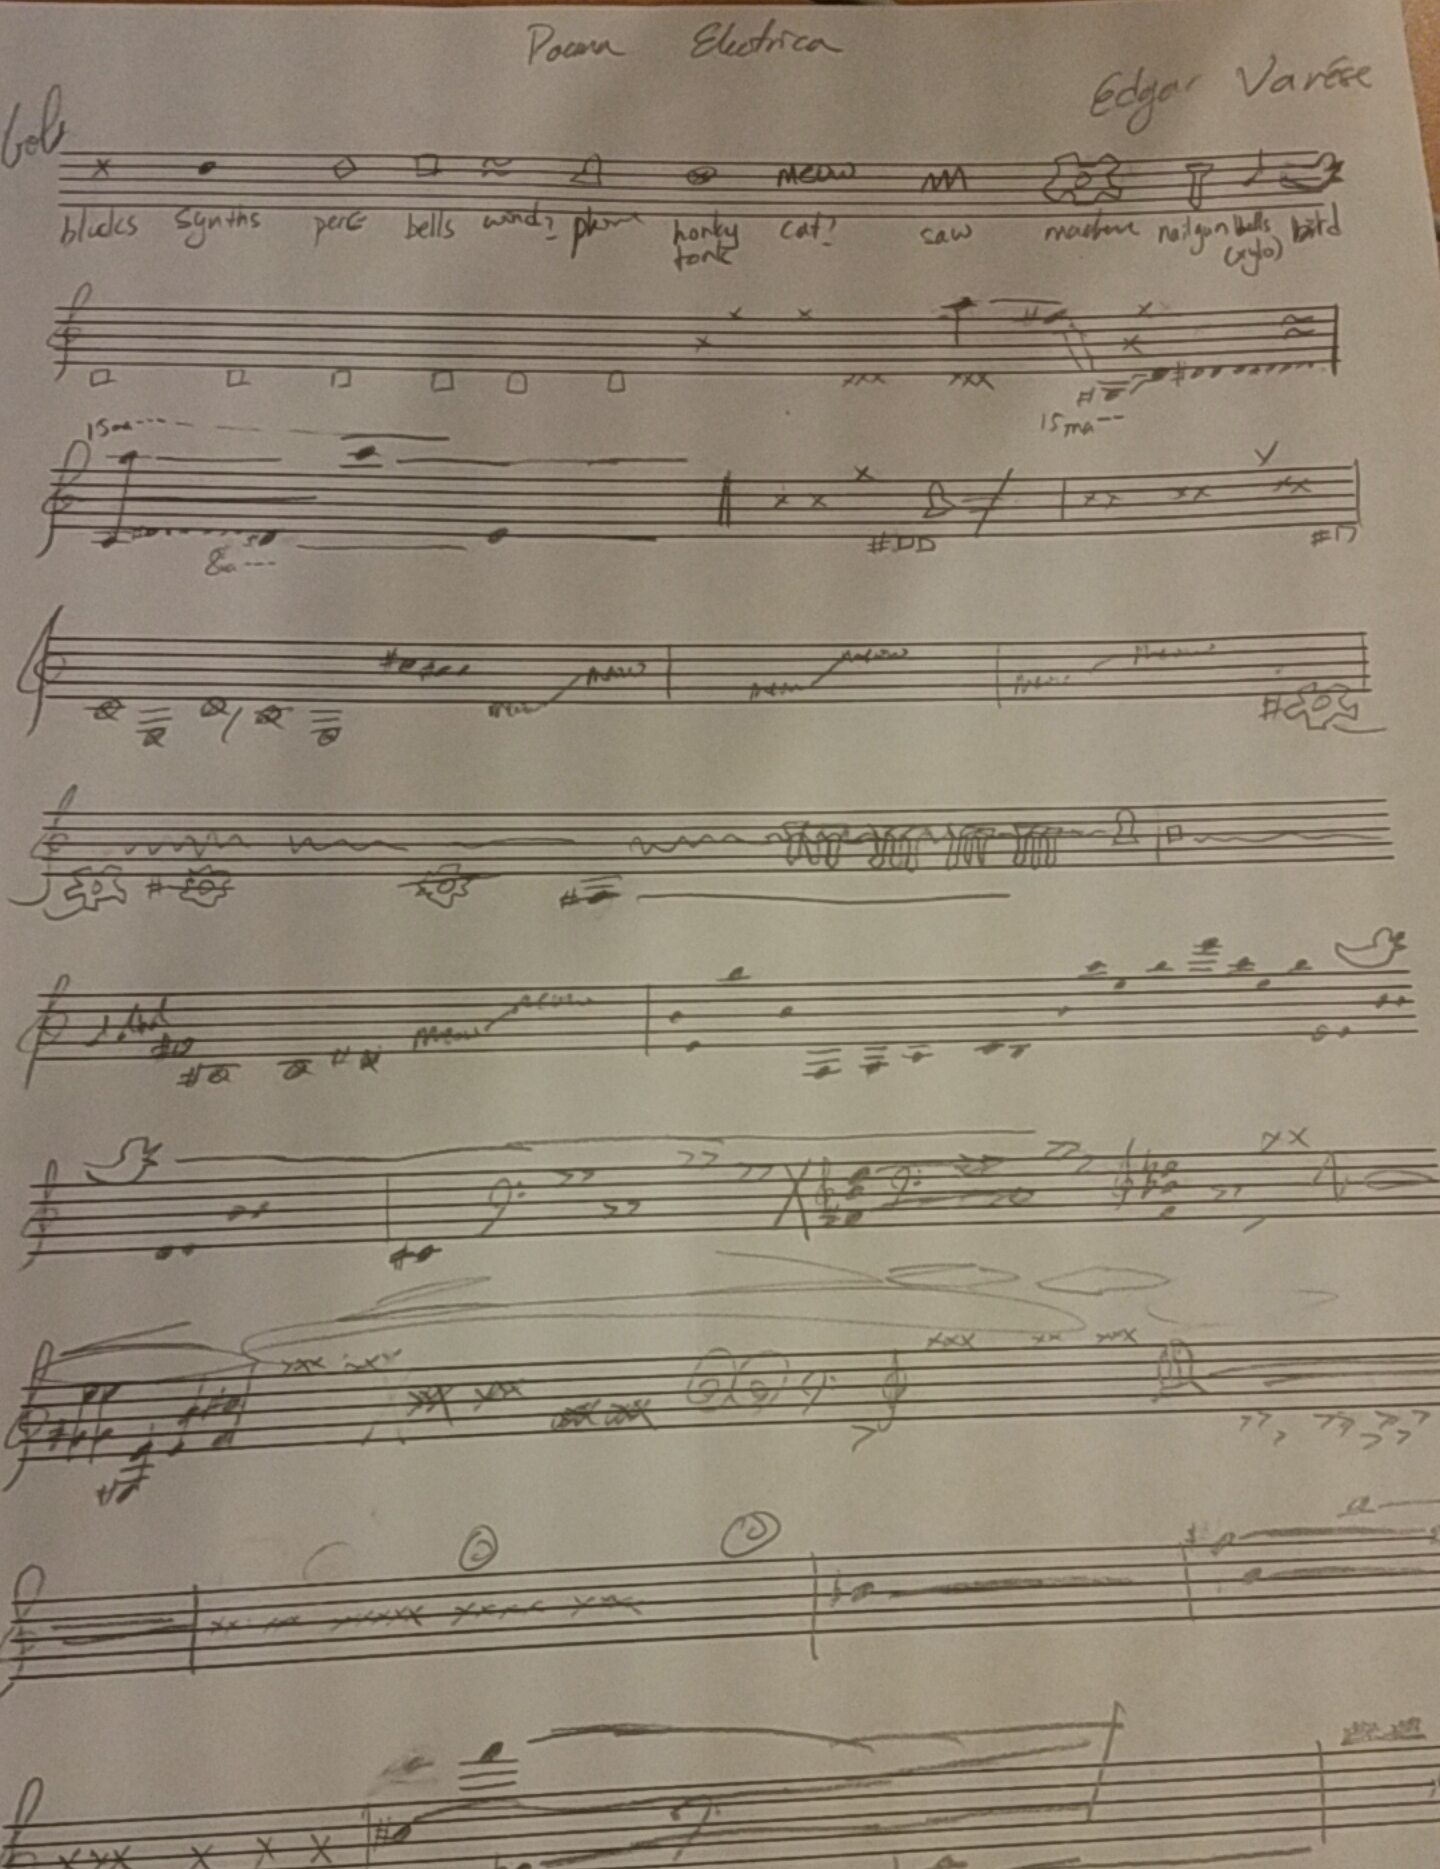 Poema Electrica
Edgar Varése
blocks synths perc bells wind? phone honky tonk cat? saw machine nailgun bells (xylo) bird
meow
15ma---
15ma---
8a---
meow meow meow meow
meow meow